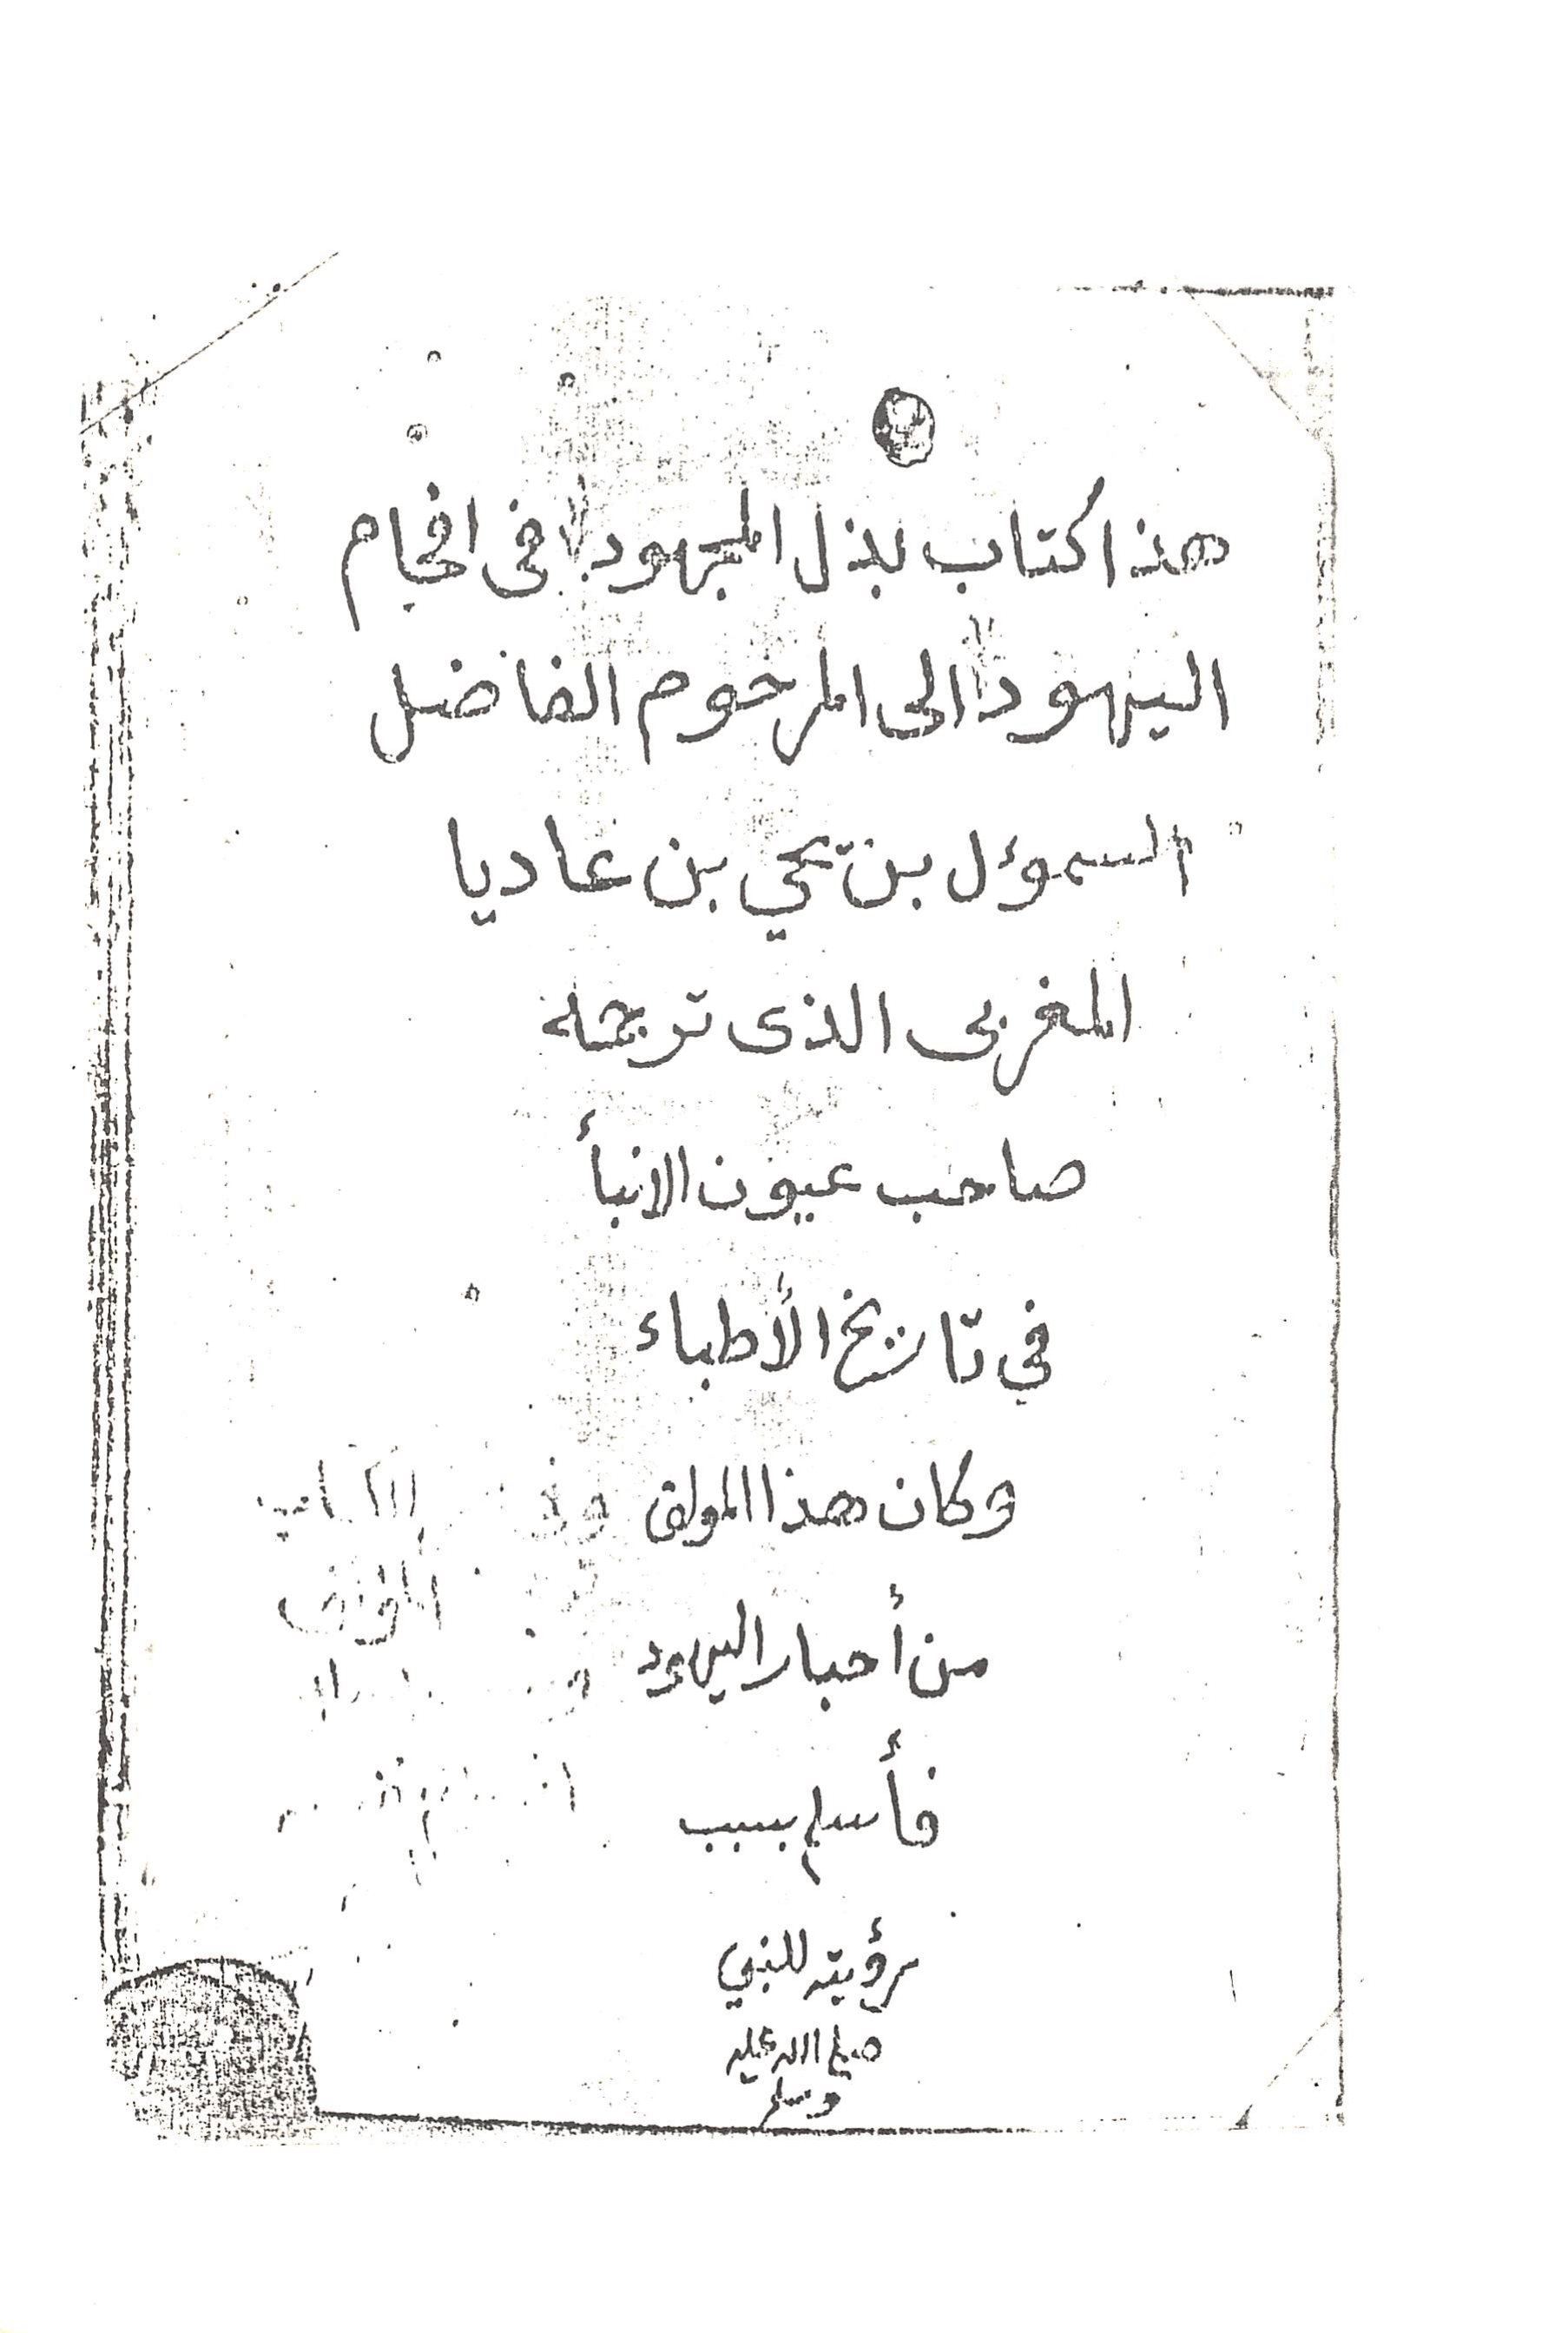 هذا كتاب بذل المجهود في افحام
اليهود الى المرحوم الفاضل
السموؤل بن يحي بن عاديا
المغربى الذى ترجمه
صاحب عيون الانبأ
في تاريخ الأطباء
وكان هذا المولف
من أحبار اليهود
فأسلم بسبب
رؤيته للنبي
صلى الله عليه
وسلم